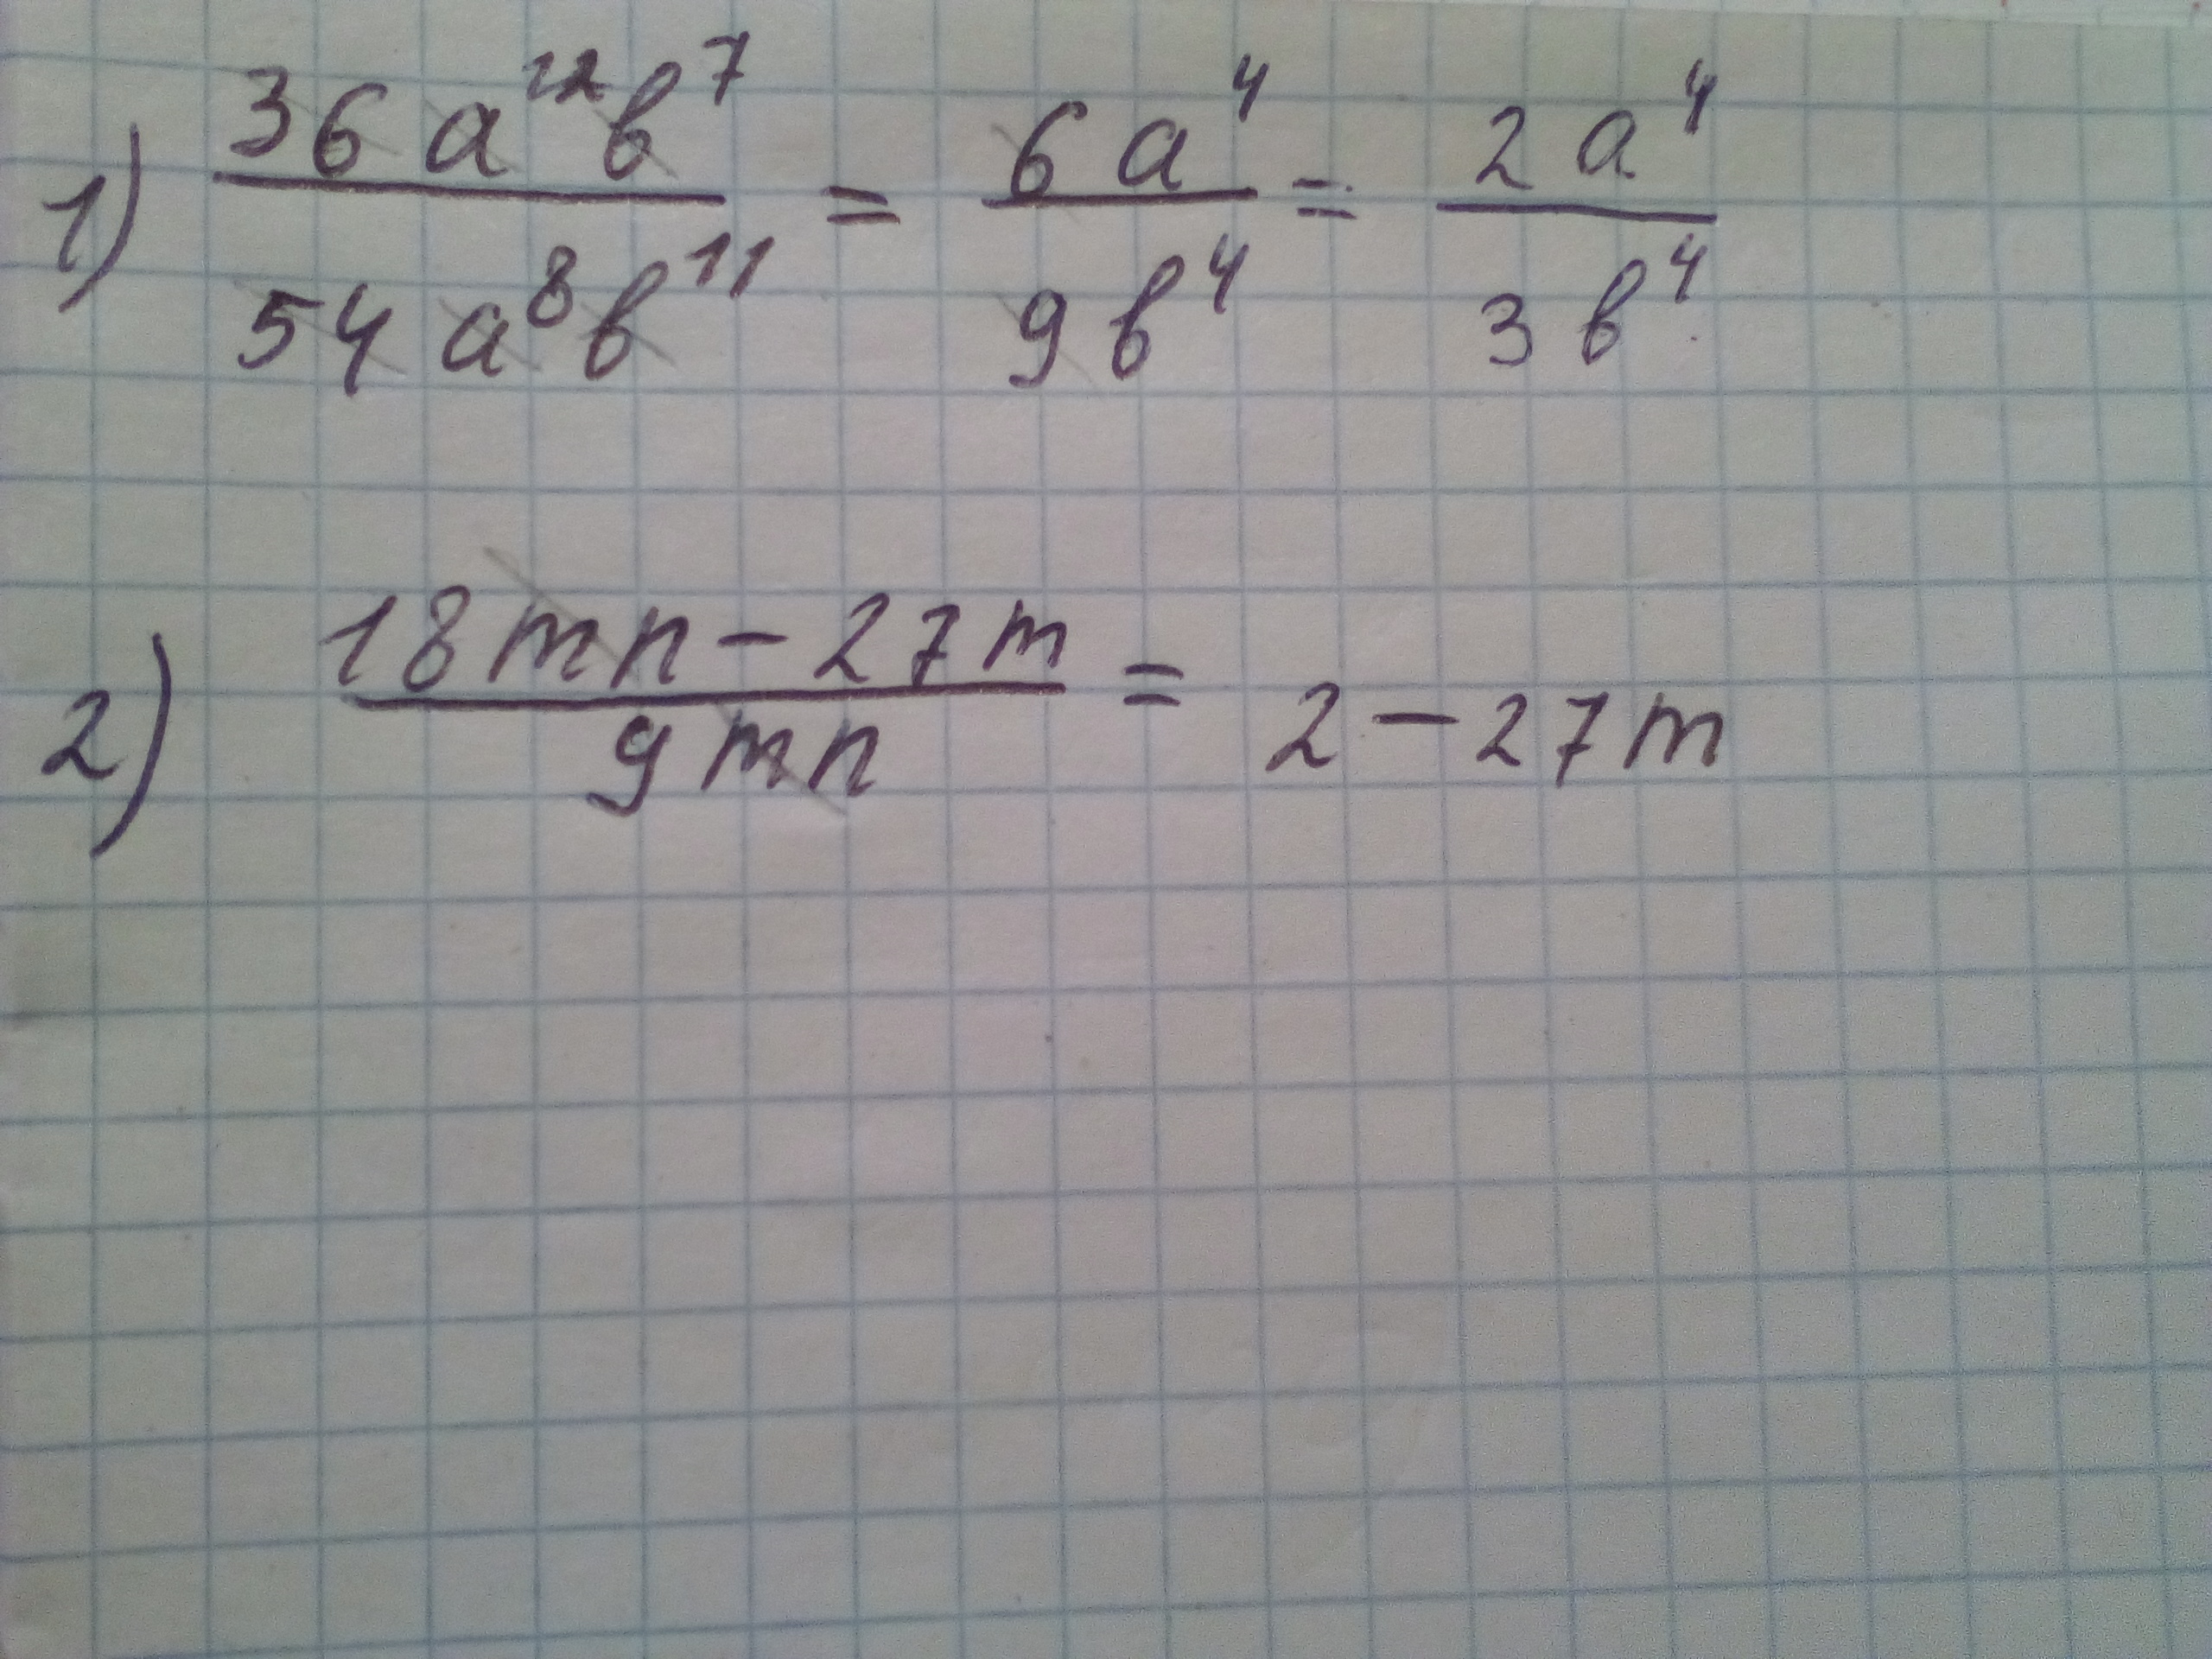 1) 36a¹²b⁷/54a⁸b¹¹ = 6a⁴/9b⁴ = 2a⁴/3b⁴
2) 18mn - 27m/9mn = 2 - 27m